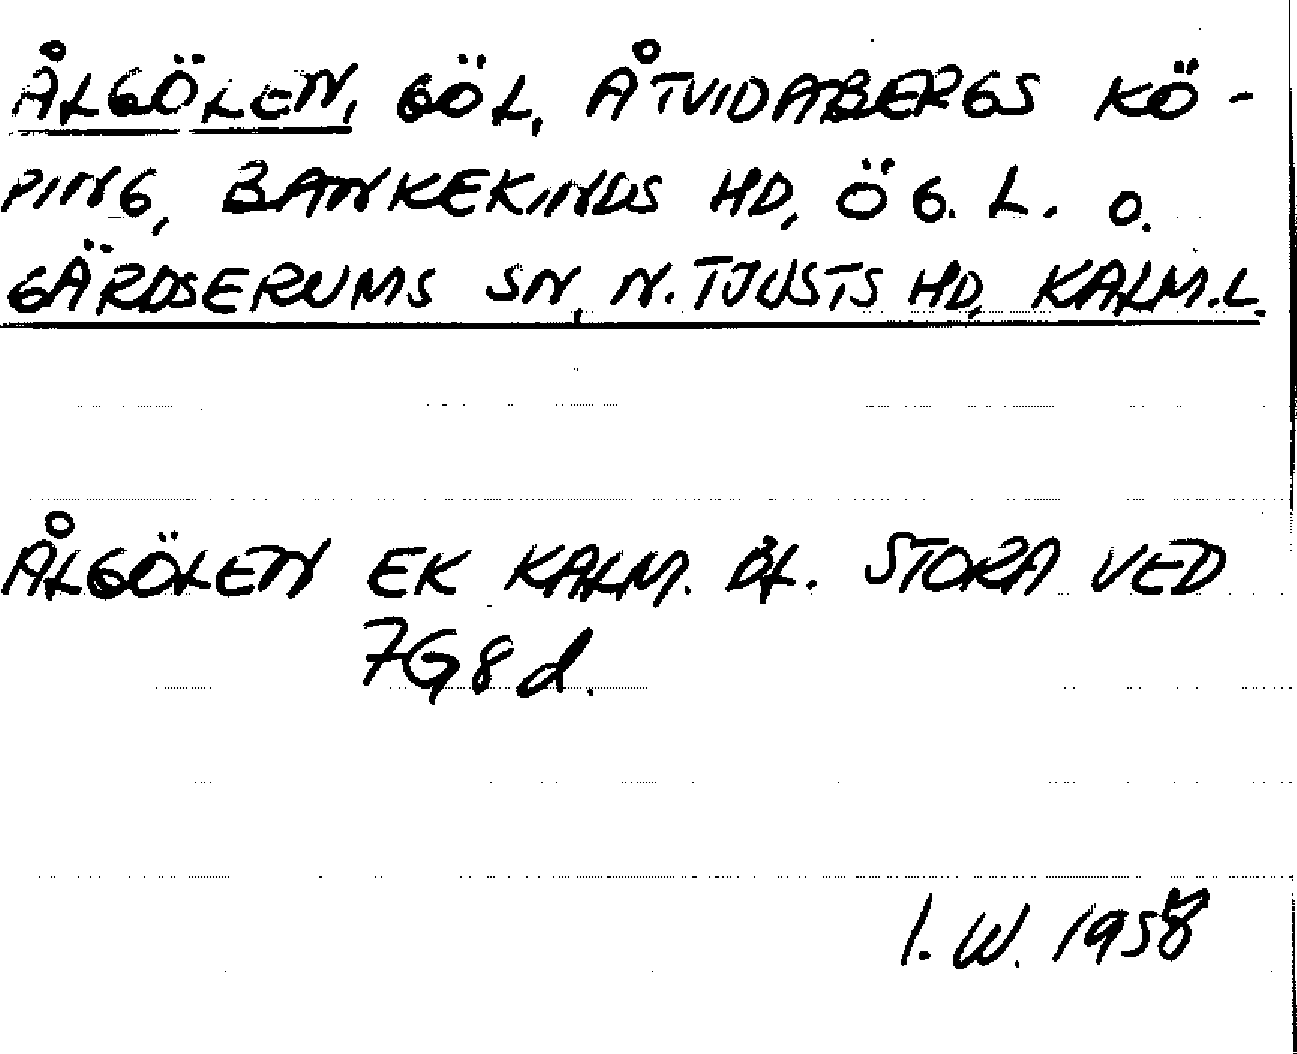 ÅLGÖLEN, GÖL, ÅTVIDABERGS KÖ-
PING, BANKEKINDS HD, ÖG. L. O.
GÄRDSERUMS SN, N. TJUSTS HD, KALM. L.
ÅLGÖLEN EK KALM. BL. STORA VED
7G8d.
I. W. 1958